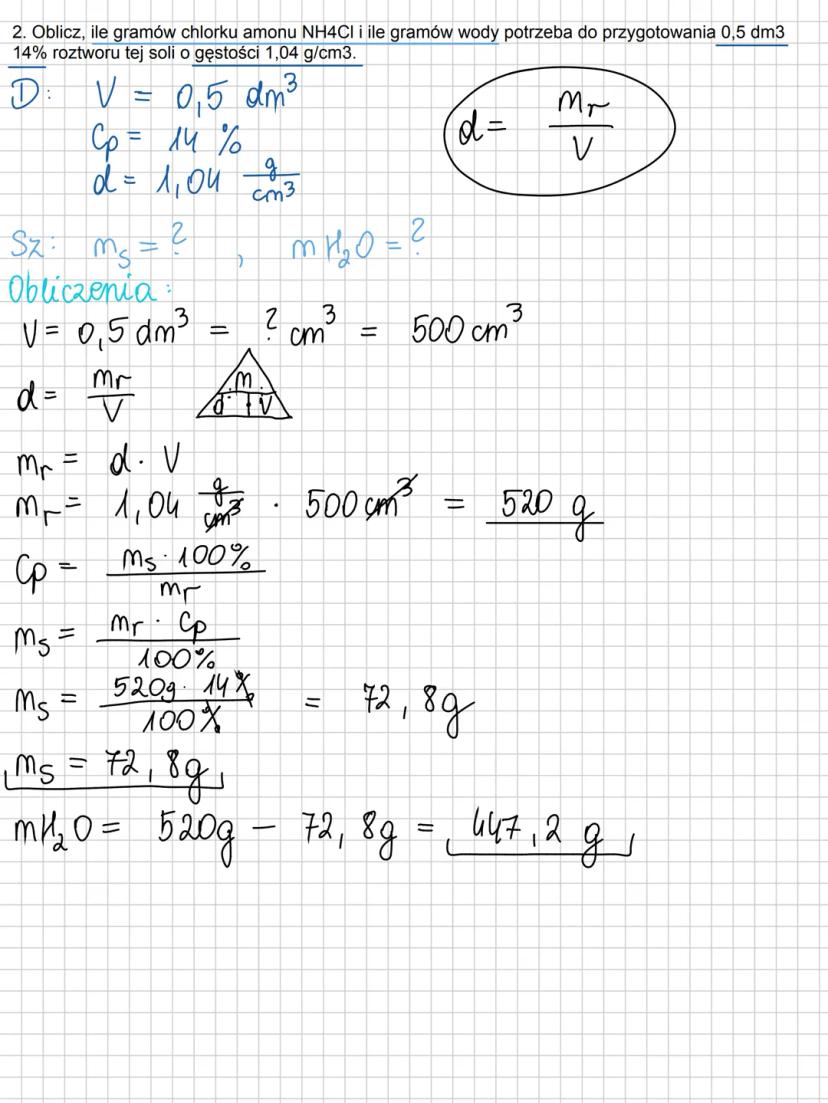 2. Oblicz, ile gramów chlorku amonu NH4Cl i ile gramów wody potrzeba do przygotowania 0,5 dm3
14% roztworu tej soli o gęstości 1,04 g/cm3.
D: V = 0,5 dm³
Cp = 14 %
d = 1,04 g/cm³
d = mr/V
Sz: ms = ? , mH₂O = ?
Obliczenia:
V = 0,5 dm³ = ? cm³ = 500 cm³
d = mr/V
m
d · V
mr = d · V
mr = 1,04 g/cm³ · 500 cm³ = 520 g
Cp = ms · 100% / mr
ms = mr · Cp / 100%
ms = 520g · 14% / 100% = 72,8g
ms = 72,8g
mH₂O = 520g − 72,8g = 447,2 g